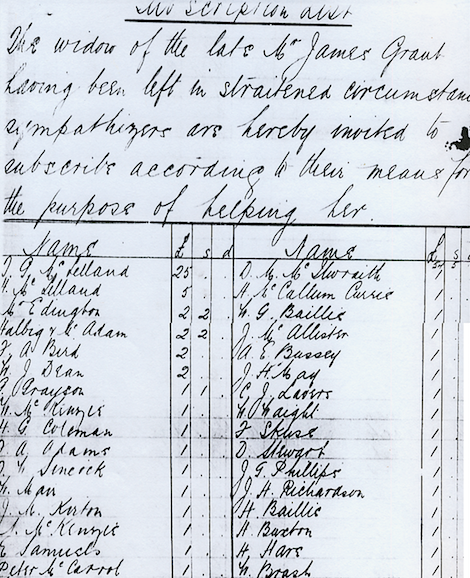 Subscription List
The widow of the late Mr James Grant
having been left in straitened circumstan
sympathizers are hereby invited to
subscribe according to their means for
the purpose of helping her.
Name £ s d Name £ s
McLelland 25 D. M. McIlwraith 1
McLelland 5 H. McCallum Currie 1
McEdington 2 2 W. G. Baillie 1
Halbig & McAdam 2 2 J. McAllister 1
A Bird 2 A. E. Bussey 1
J. Dean 2 J. H. May 1
Grayson 1 C. J. Lavers 1
McKenzie 1 W. Naight 1
H. G. Coleman 1 F. Skuse 1
A. Adams 1 D. Stewart 1
1 J G Phillips 1
Man 1 J. H. Richardson 1
J. M. Kerton 1 H. Baillie 1
McKenzie 1 H. Buxton 1
Samuels 1 H. Hare 1
Peter McCarrol 1 W. Brash 1